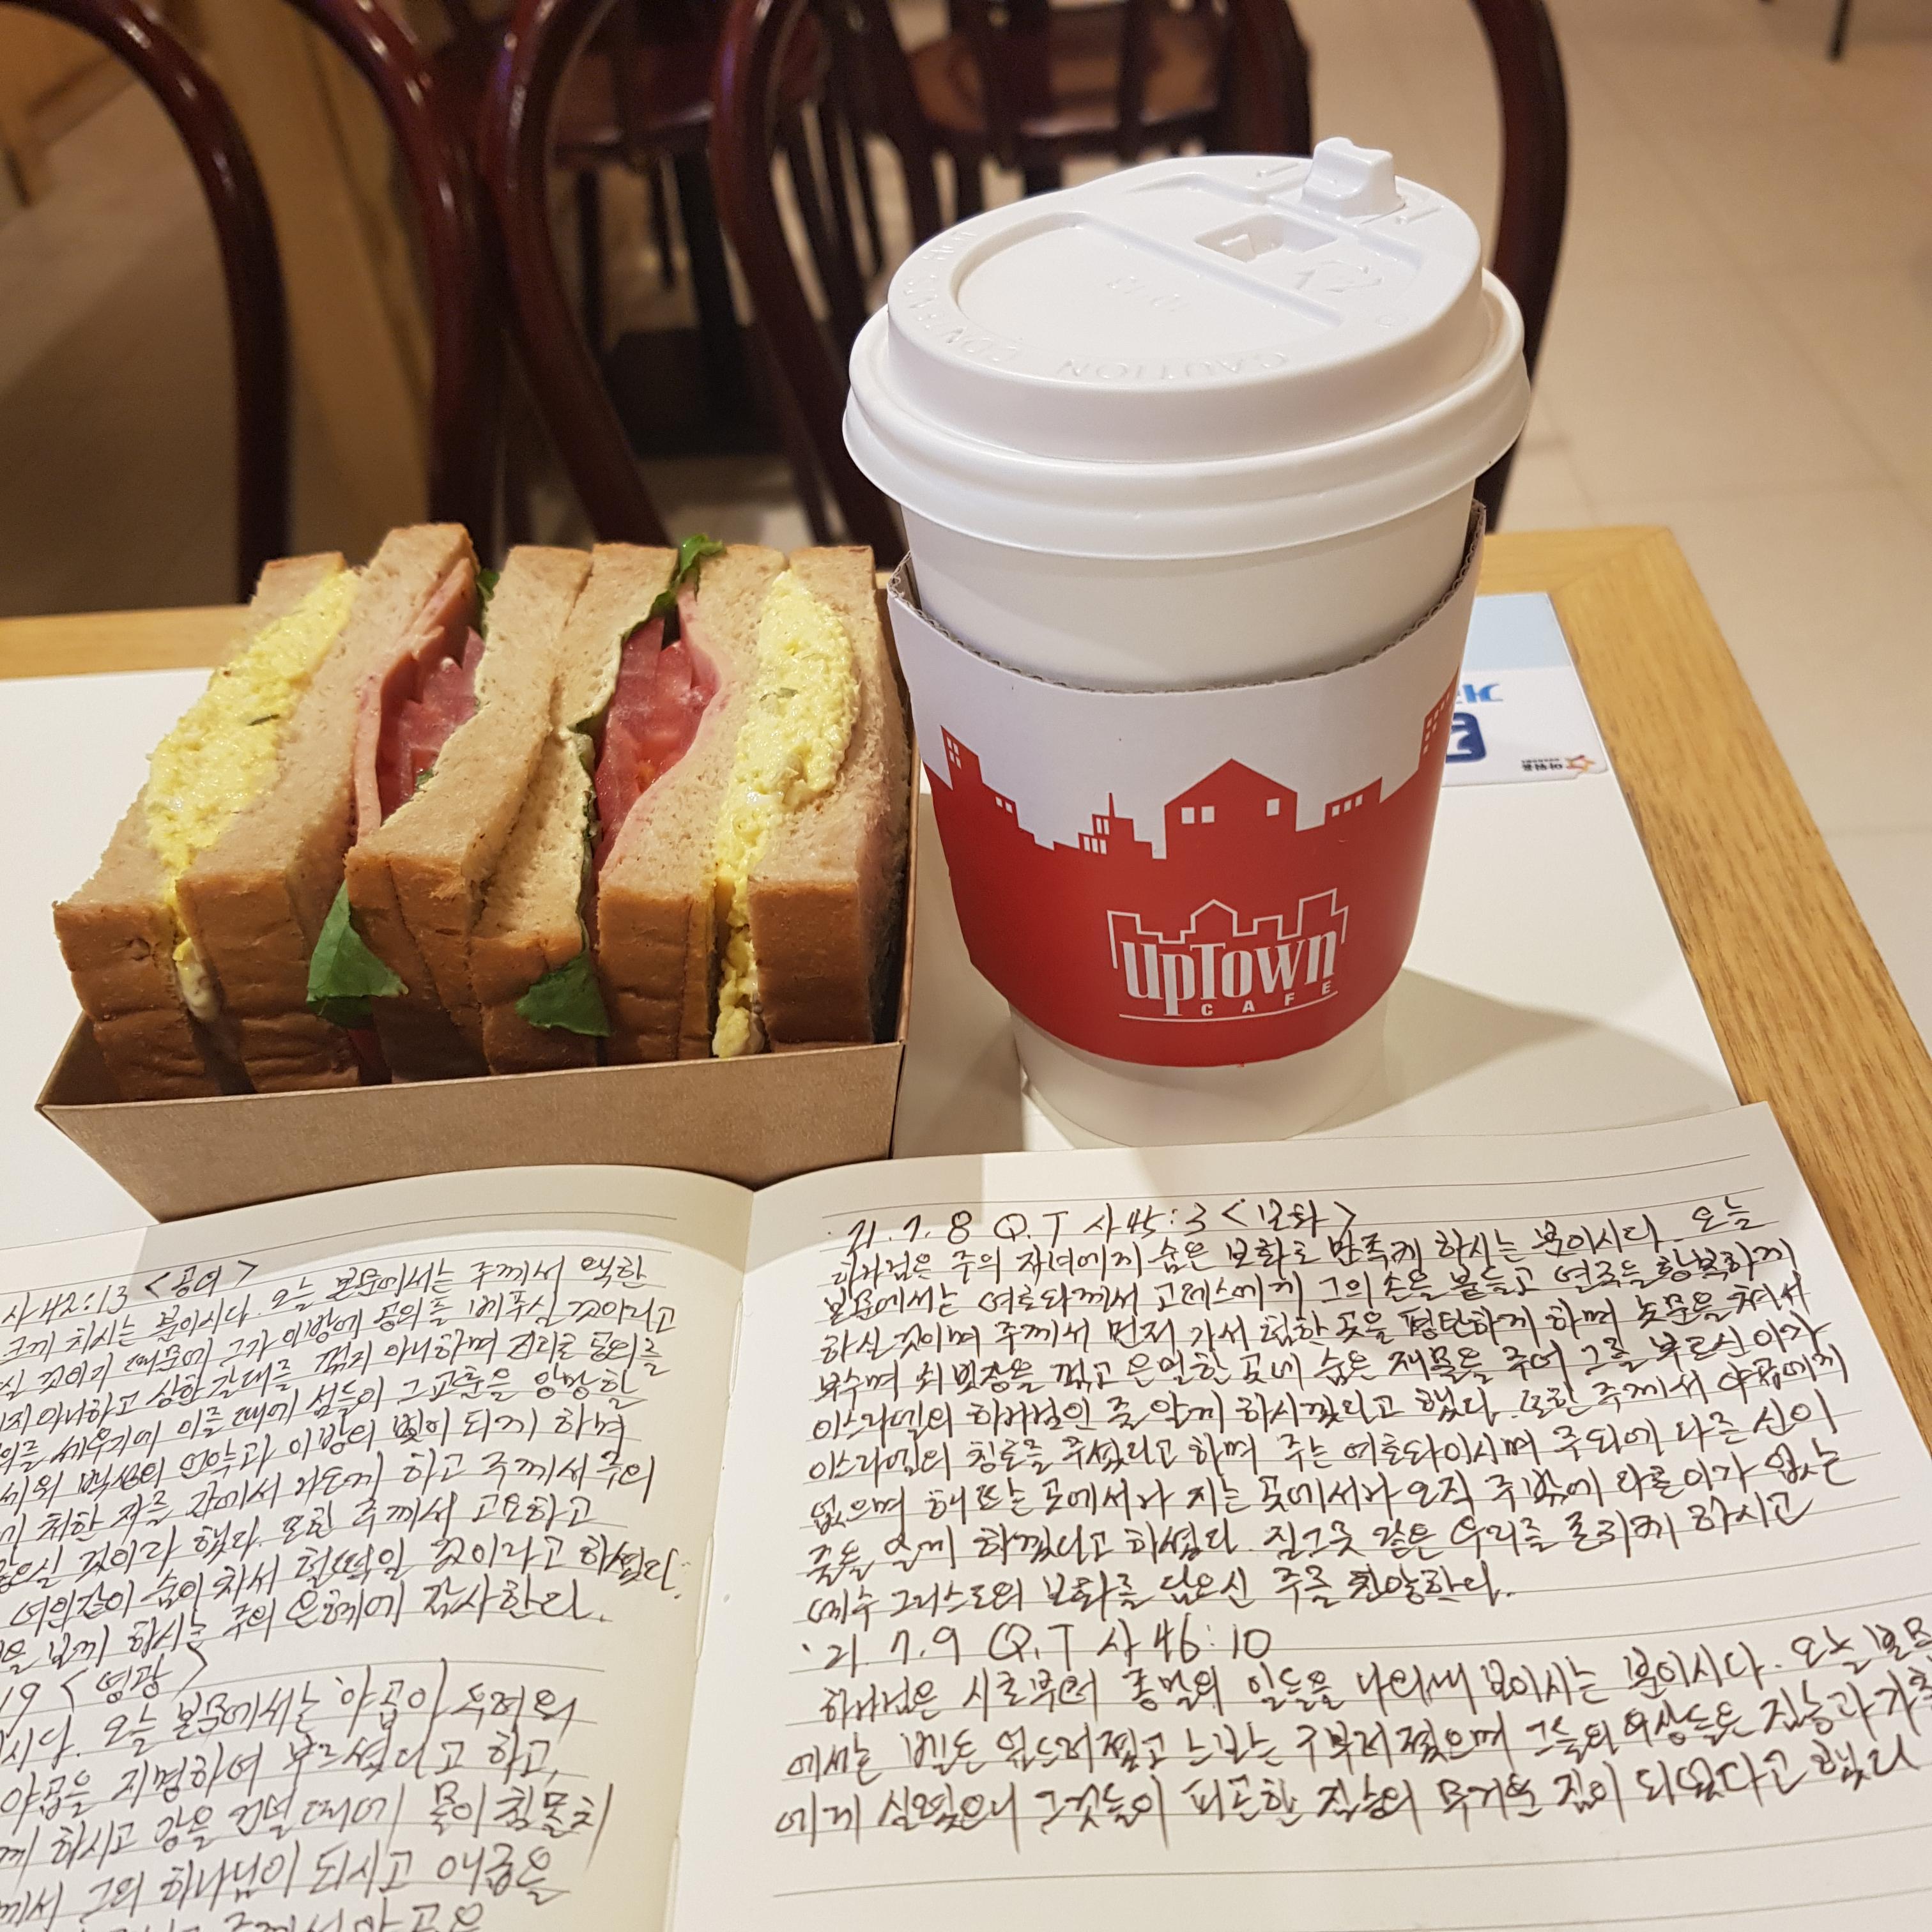 CAUTION
UpTown
CAFE
사42:13 <공의>
크게 치시는 분이시다. 오늘 본문에서는 주께서 택한
것이기 때문에 그가 이방에 공의를 베푸실 것이라고
아니하고 상한 갈대를 꺾지 아니하며 진리로 공의를
세우기에 이를 때에 섬들이 그 교훈을 앙망할
백성의 언약과 이방의 빛이 되게 하며
처한 자를 감에서 나오게 하고 주께서 주의
것이라 했다. 또한 주께서 고요하고
여인같이 숨이 차서 헐떡일 것이라고 하셨다.
보게 하시는 주의 은혜에 감사한다.
19 <영광>
시다. 오늘 본문에서는 야곱아 두려워
야곱을 지명하여 부르셨다고 하고,
께 하시고 강을 건널 때에 물이 침몰치
께서 그의 하나님이 되시고 애굽을
'21.7.8 Q.T 사45:3 <보화>
하나님은 주의 자녀에게 숨은 보화로 만족케 하시는 분이시다. 오늘
본문에서는 여호와께서 고레스에게 그의 손을 붙들고 열국을 항복하게
하실 것이며 주께서 먼저 가서 험한 곳을 평탄하게 하며 놋문을 쳐서
부수며 쇠 빗장을 꺾고 은밀한 곳에 숨은 재물을 주어 그를 부르신 이가
이스라엘의 하나님인 줄 알게 하시겠다고 했다. 또한 주께서 야곱에게
이스라엘의 칭호를 주셨다고 하며 주는 여호와이시며 주 외에 다른 신이
없으며 해 뜨는 곳에서나 지는 곳에서나 오직 주 밖에 다른 이가 없는
줄을 알게 하겠다고 하셨다. 질그릇 같은 우리를 고치게 하시고
예수 그리스도의 보화를 담으신 주를 찬양한다.
'21.7.9 Q.T 사46:10
하나님은 시초부터 종말의 일들을 나타내 보이시는 분이시다. 오늘 본문
에서는 벨은 엎드러졌고 느보는 구부러졌으며 그들의 우상들은 짐승과 가축
에게 실렸으니 그것들이 피곤한 짐승의 무거운 짐이 되었다고 했다